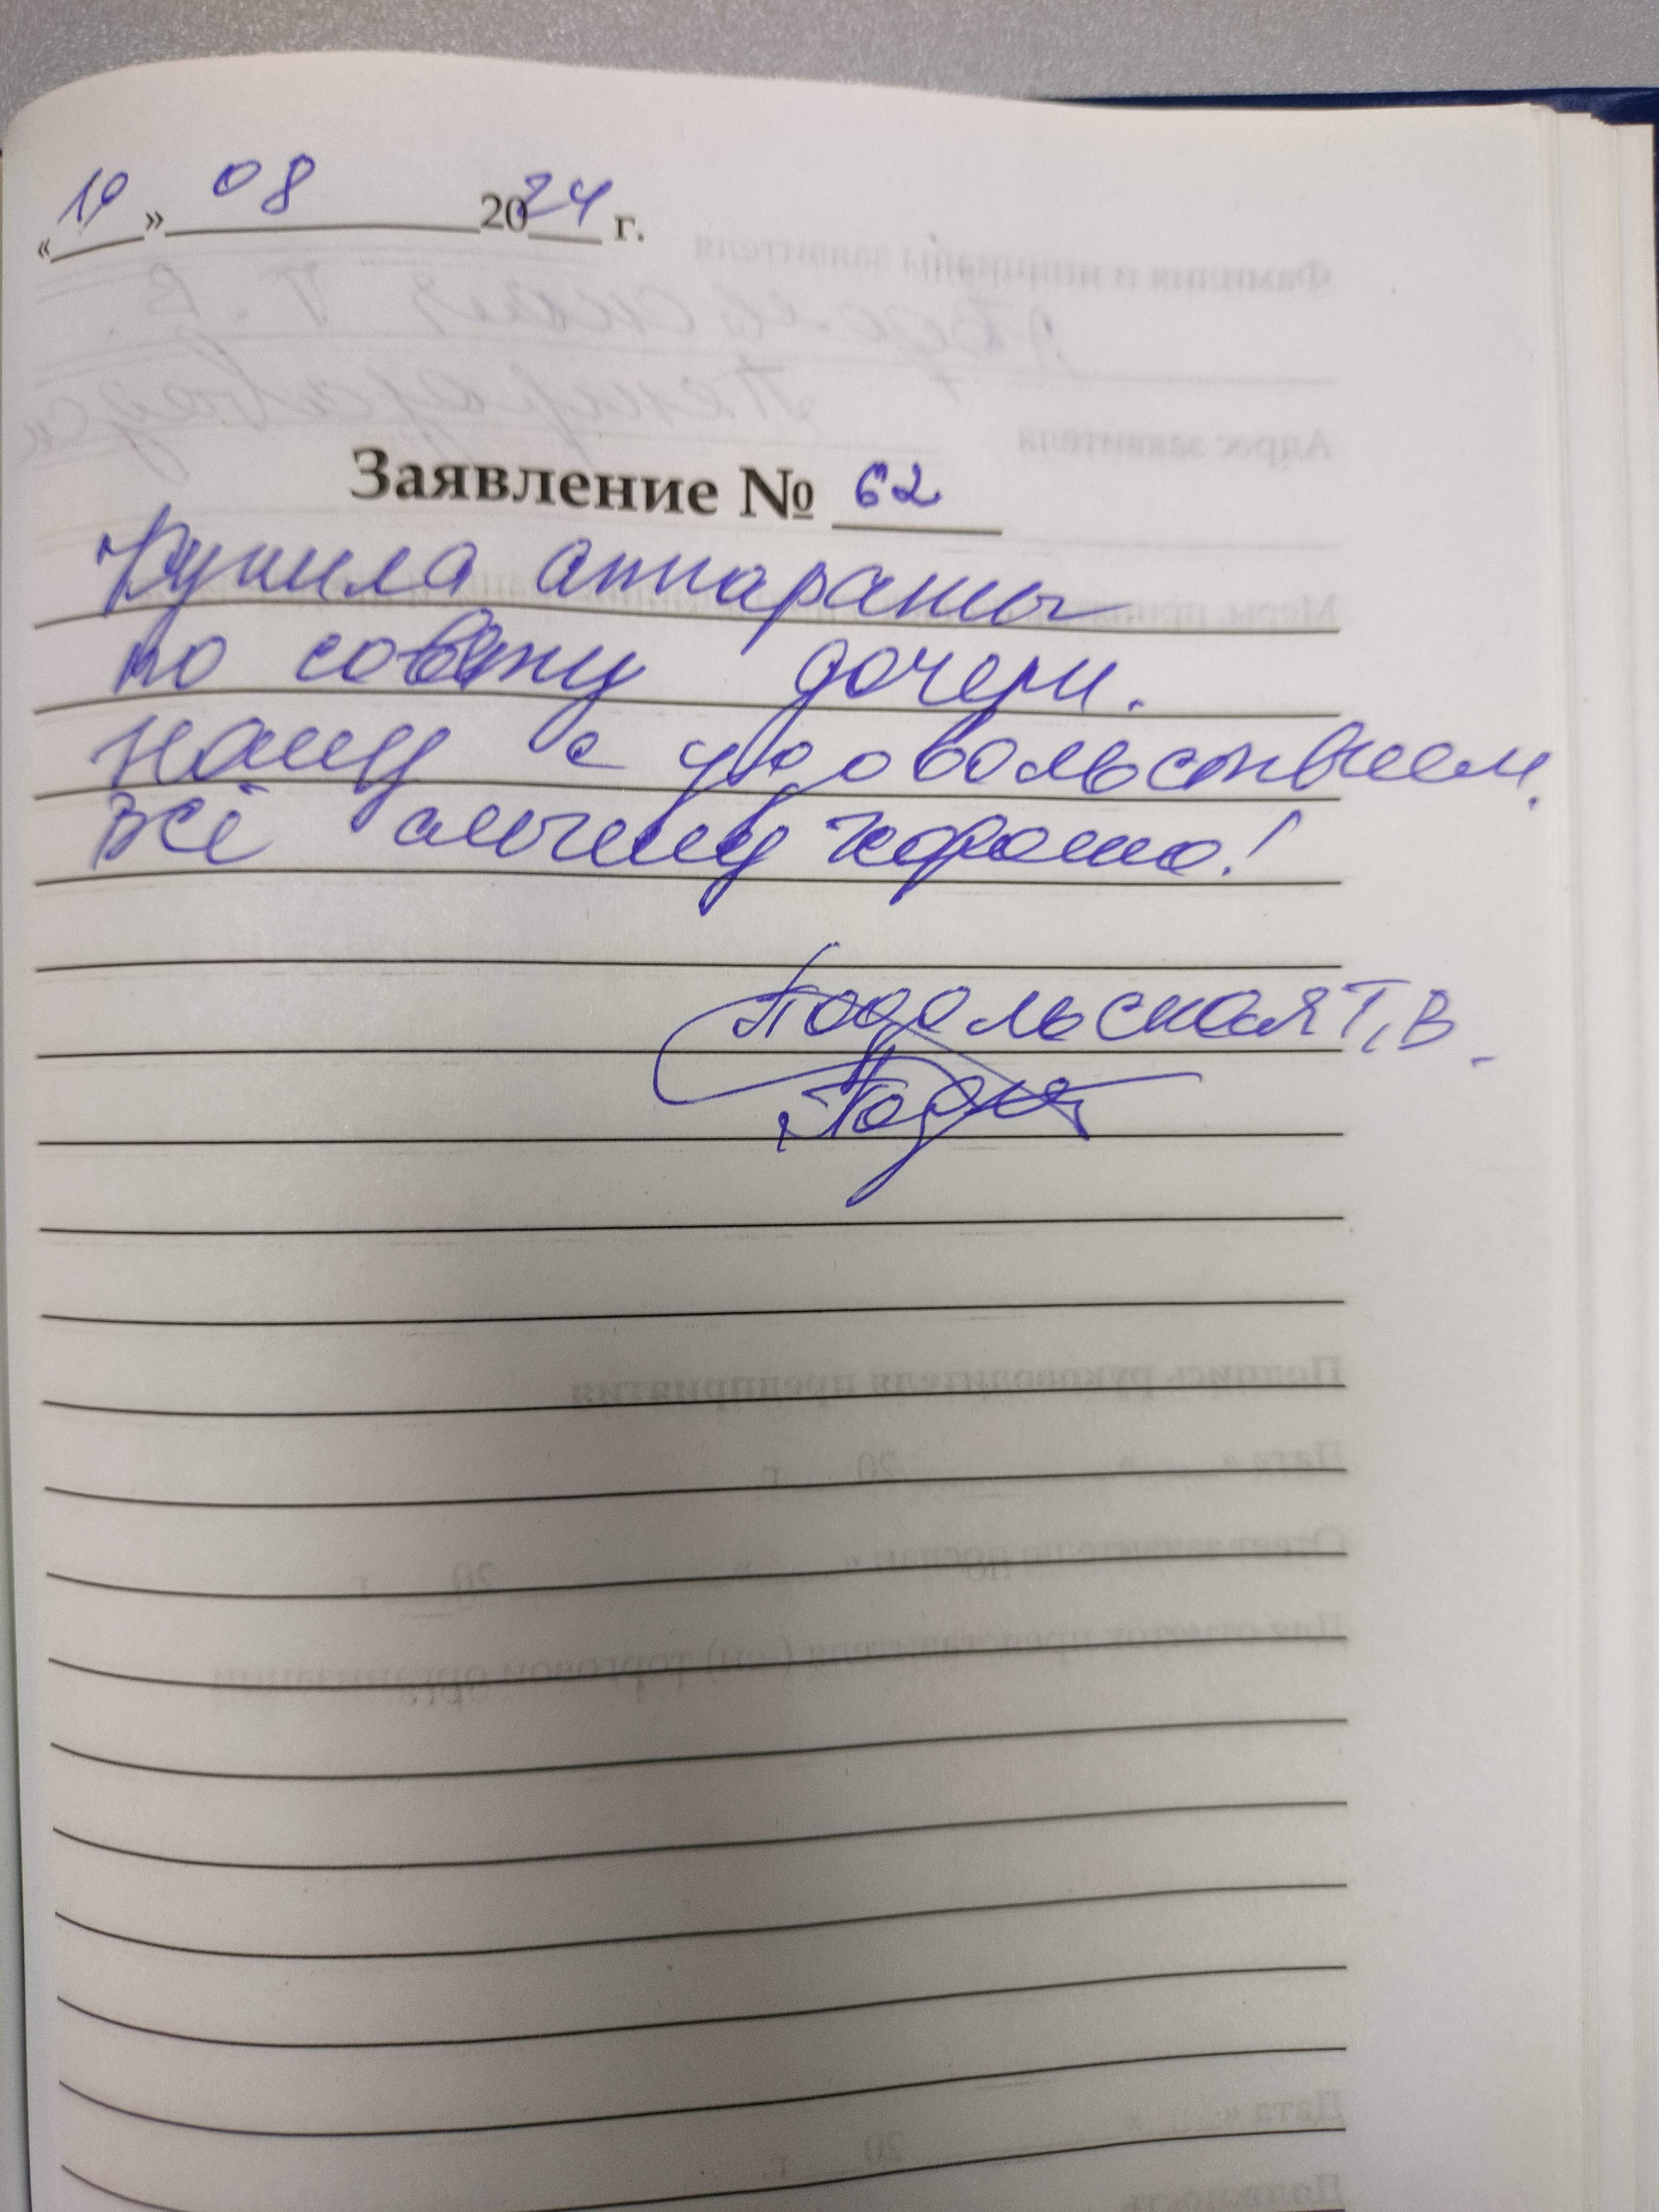 «10» 08 2024 г.
Заявление № 62
Купила аппараты
по совету дочери.
Ношу с удовольствием,
всё слышу хорошо!
Подольская Т.В.